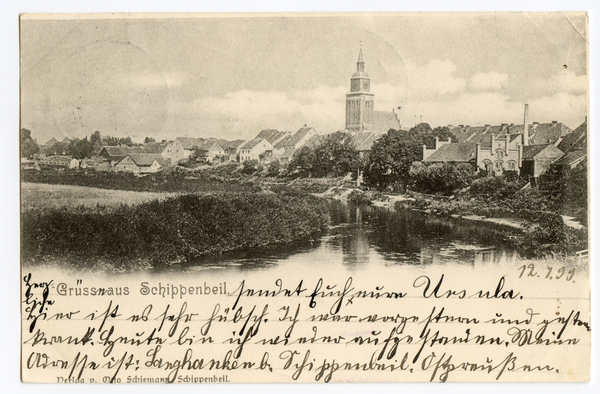 12.7.99.
Herzliche Grüsse aus Schippenbeil. sendet Euch eure Ursula.
Hier ist es sehr hübsch. Ich war vorgestern und gestern
krank. Heute bin ich wieder aufgestanden. Meine
Adresse ist: Langhanken b. Schippenbeil. Ostpreußen.
Verlag v. Otto Schiemann, Schippenbeil.